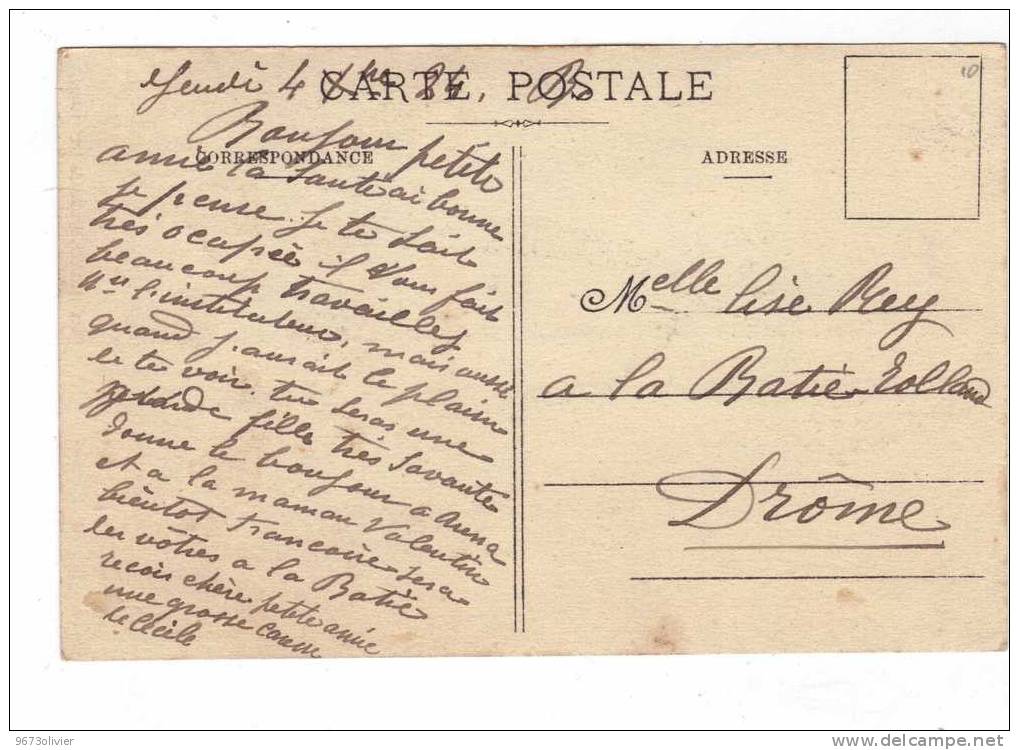 Jeudi 4 34, B
CARTE POSTALE
Bonjour petite
CORRESPONDANCE
amie ta Santé ai bonne
je pense. Je te sait
très ocapée il vous fait
beaucoup travailler
l'instituteur, mais aussi
quand j'aurait le plaisir
de te voir. tu seras une
grande fille très Savante
donne le bonjour a
et a la maman Valentin
bientôt francoise sera
les vôtres a la Batie
recois chère petite amie
une grosse caresse
de Cécile
ADRESSE
Melle lise Rey
a la Batie Rolland
Drôme
10
9673olivier
www.delcampe.net